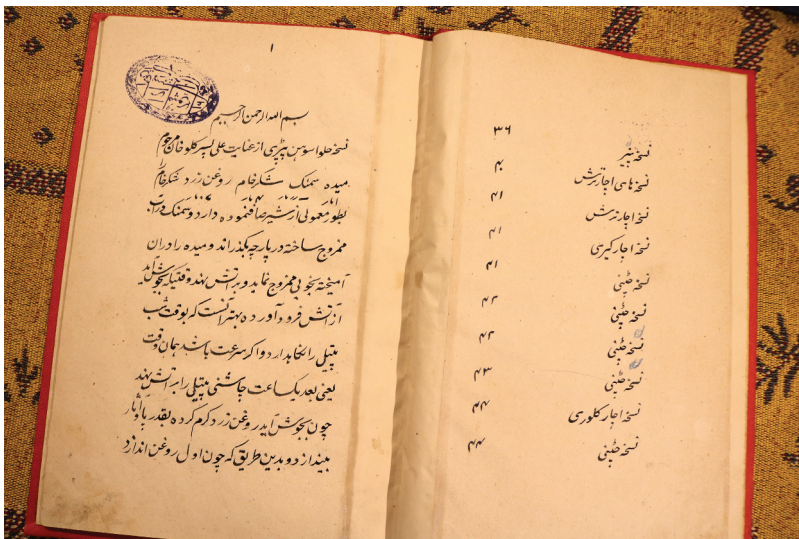 نسخه پنیر ۳۶
نسخه های اچار ترش ۴۰
نسخه اچار ترش ۴۱
نسخه اچار کیری ۴۱
نسخه چٹنی ۴۱
نسخه چٹنی ۴۲
نسخه چٹنی ۴۲
نسخه چٹنی ۴۳
نسخه اچار کلوری ۴۴
نسخه چٹنی ۴۴
۱
بسم الله الرحمن الرحیم
نسخه حلوا سوهن پیڑی از عنایت علی پسر کلو خان مرحوم
میده سمنک شکر خام روغن زرد شکر خام را
بطور معمولی از شیر صاف نموده دارد و سمنک در آب
ممزوج ساخته در پارچه بگذراند و میده را در ان
آمیخته بخوبی ممزوج نماید و بر آتش نهد وقتیکه بجوش آید
از آتش فرود آورده بهتر آنست که بوقت شب
پتیل را نگاهدارد و اگر سرعت باشد همان وقت
یعنی بعد یکساعت چاشنی پتیل را بر آتش نهد
چون بجوش آید روغن زرد گرم کرده بقدر پاو آثار
بیندازد و بدین طریق که چون اول روغن اندازد